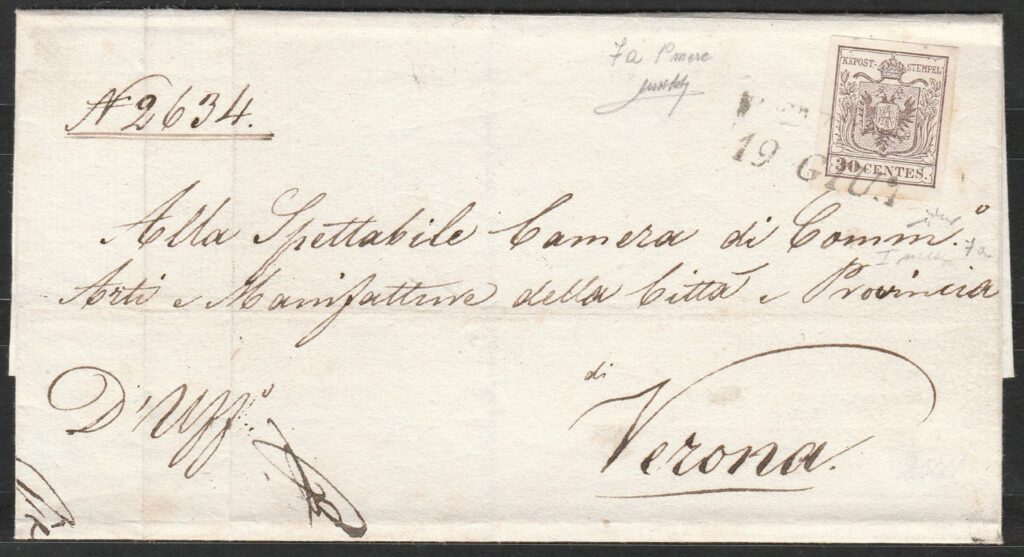 7a
N 2634.
KKPOST-STEMPEL
30 CENTES.
19 GIU.
Alla Spettabile Camera di Comm.º
Arti e Manifatture della Città e Provincia
di
Verona.
D'Uff.º
7a
I